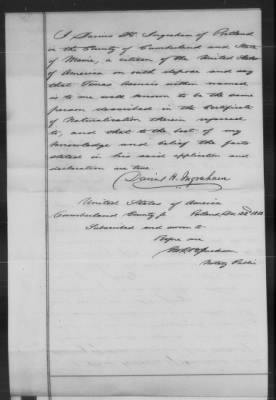 I Darius H. Ingraham of Portland
in the County of Cumberland and State
of Maine, a citizen of the United States
of America on oath depose and say
that within named
is to me well known to be the same
person described in the Certificate
of Naturalization therein referred
to, and that to the best of my
knowledge and belief the facts
stated in his said application and
declaration are true
Darius H. Ingraham
United States of America
Cumberland County ss Portland,
Subscribed and sworn to
Before me
Notary Public